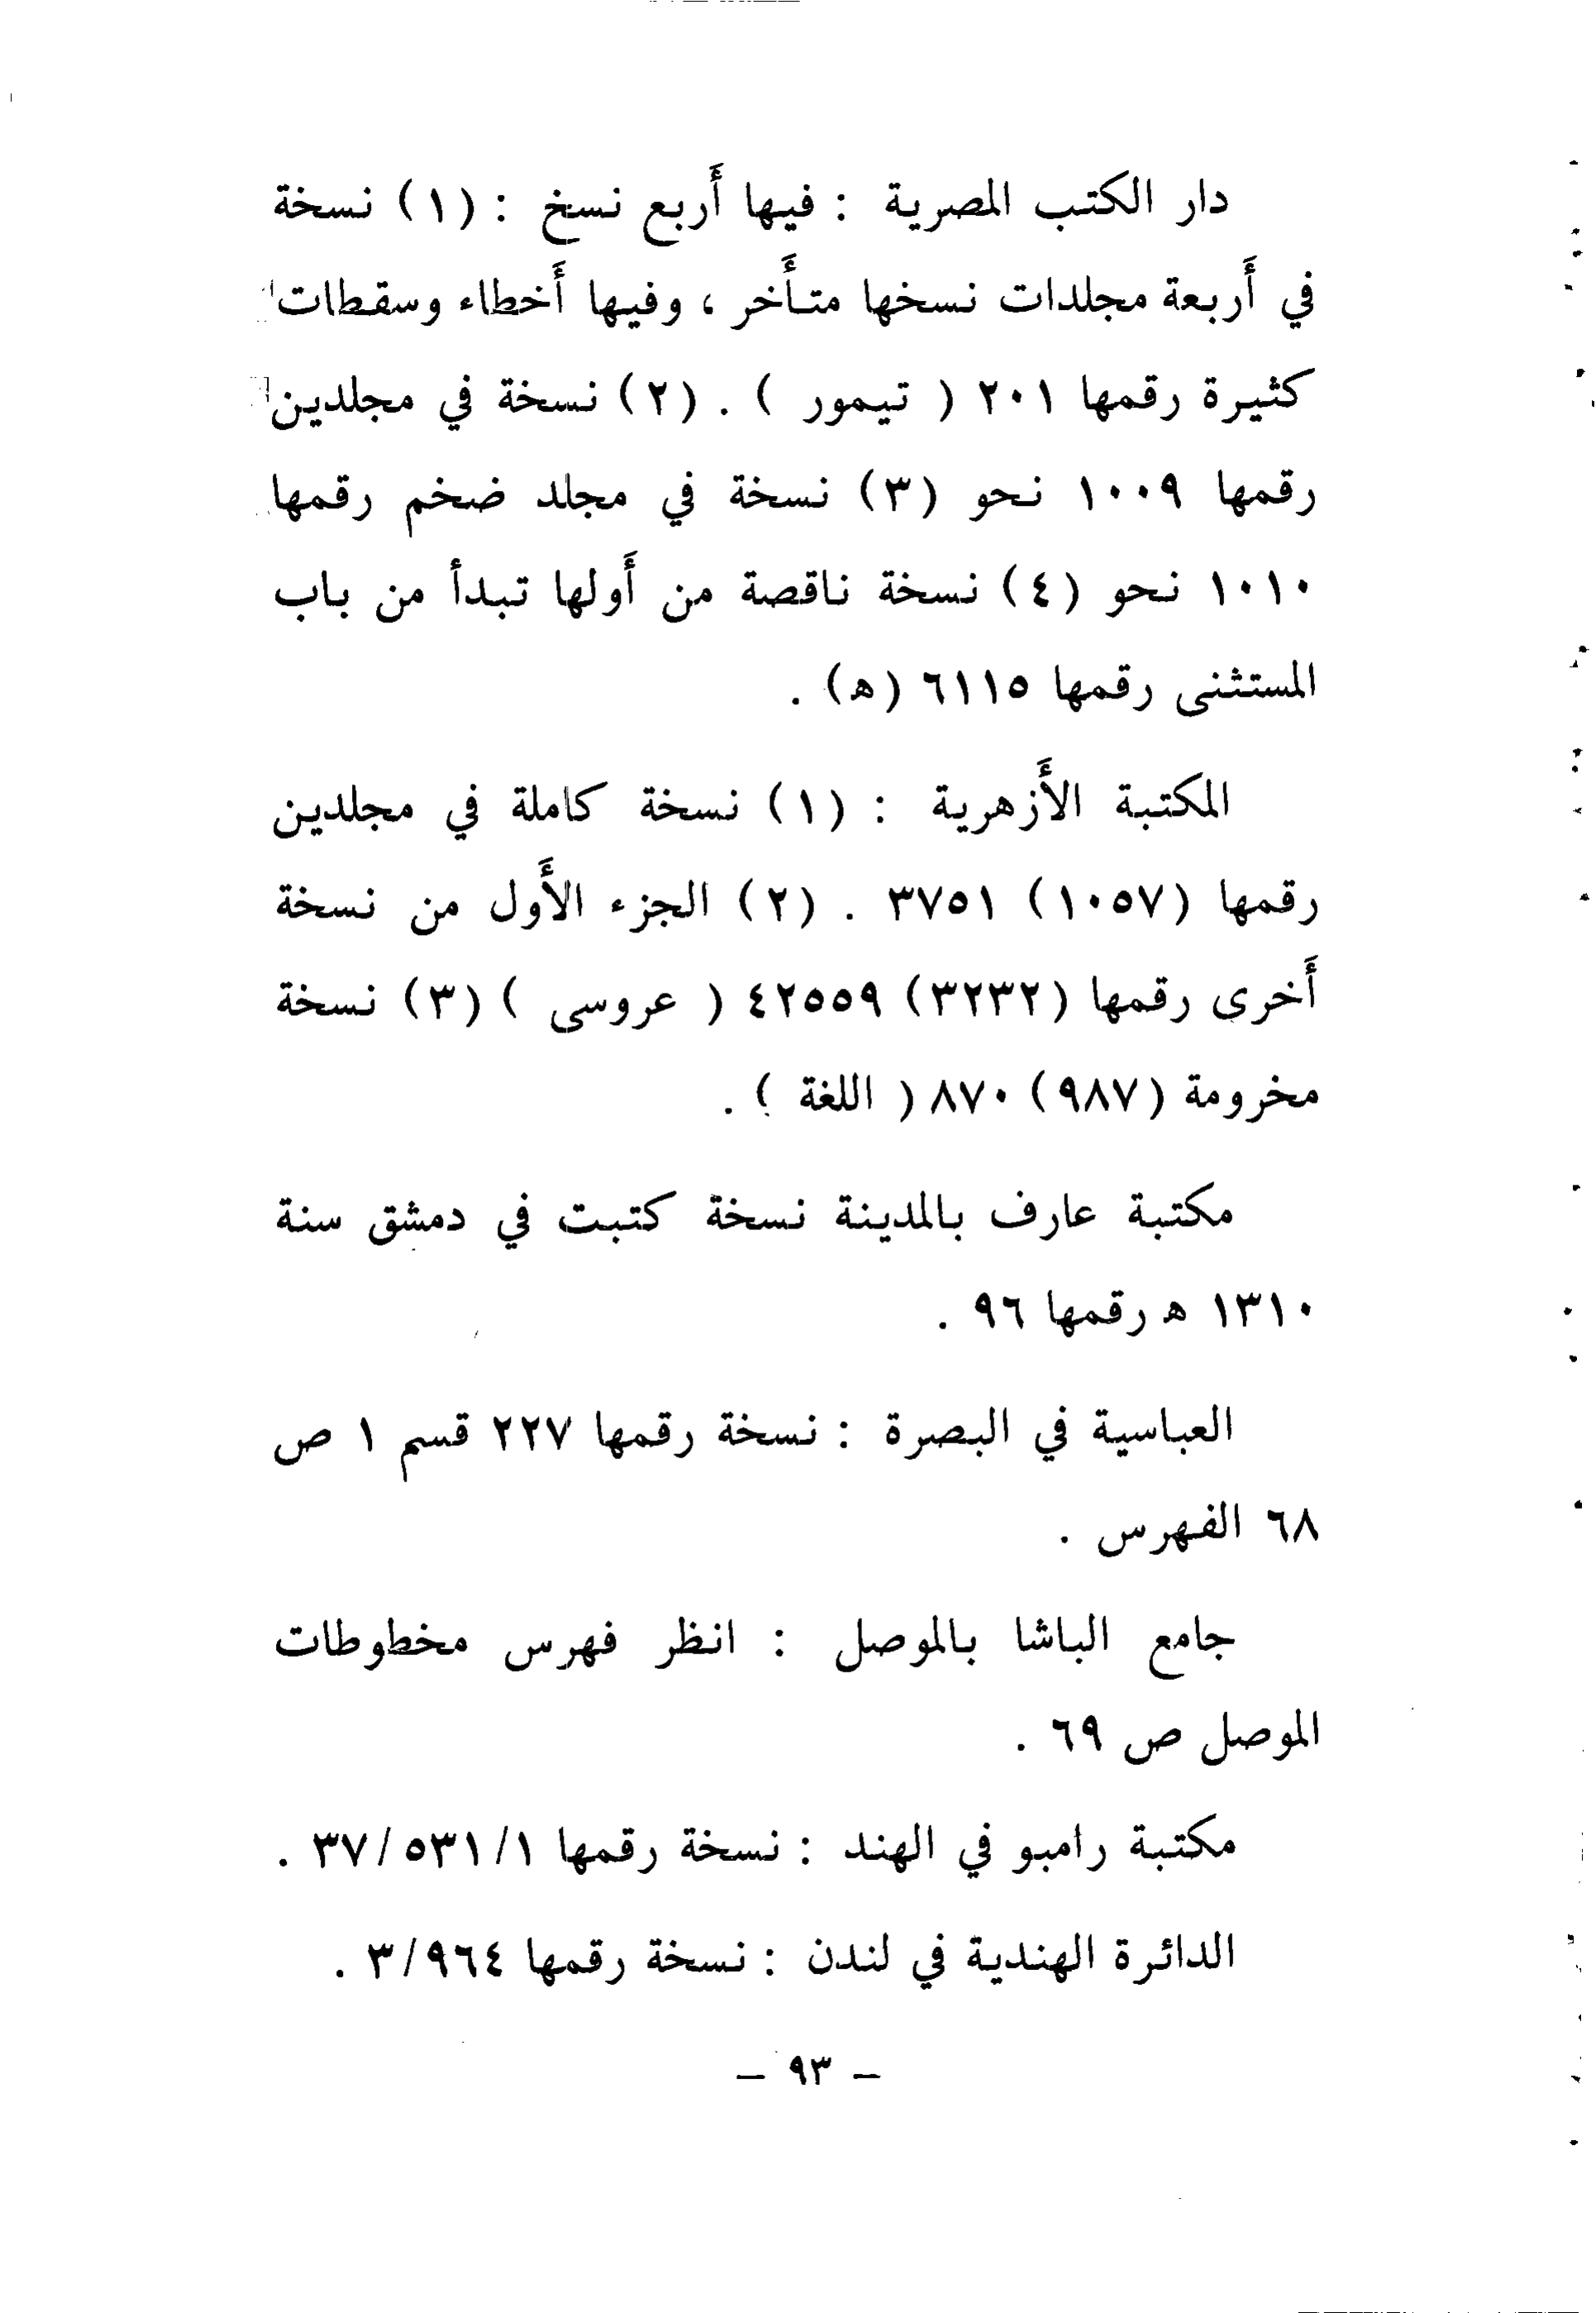 دار الكتب المصرية : فيها أَربع نسخ : (١) نسخة
في أَربعة مجلدات نسخها متأَخر ، وفيها أَخطاء وسقطات
كثيرة رقمها ٢٠١ ( تيمور ) . (٢) نسخة في مجلدين
رقمها ١٠٠٩ نحو (٣) نسخة في مجلد ضخم رقمها
١٠١٠ نحو (٤) نسخة ناقصة من أَولها تبدأ من باب
المستثنى رقمها ٦١١٥ (ه) .
المكتبة الأَزهرية : (١) نسخة كاملة في مجلدين
رقمها (١٠٥٧) ٣٧٥١ . (٢) الجزء الأَول من نسخة
أَخرى رقمها (٣٢٣٢) ٤٢٥٥٩ ( عروسى ) (٣) نسخة
مخرومة (٩٨٧) ٨٧٠ ( اللغة ) .
مكتبة عارف بالمدينة نسخة كتبت في دمشق سنة
١٣١٠ ه رقمها ٩٦ .
العباسية في البصرة : نسخة رقمها ٢٢٧ قسم ١ ص
٦٨ الفهرس .
جامع الباشا بالموصل : انظر فهرس مخطوطات
الموصل ص ٦٩ .
مكتبة رامبو في الهند : نسخة رقمها ٣٧/٥٣١/١ .
الدائرة الهندية في لندن : نسخة رقمها ٣/٩٦٤ .
– ٩٣ –